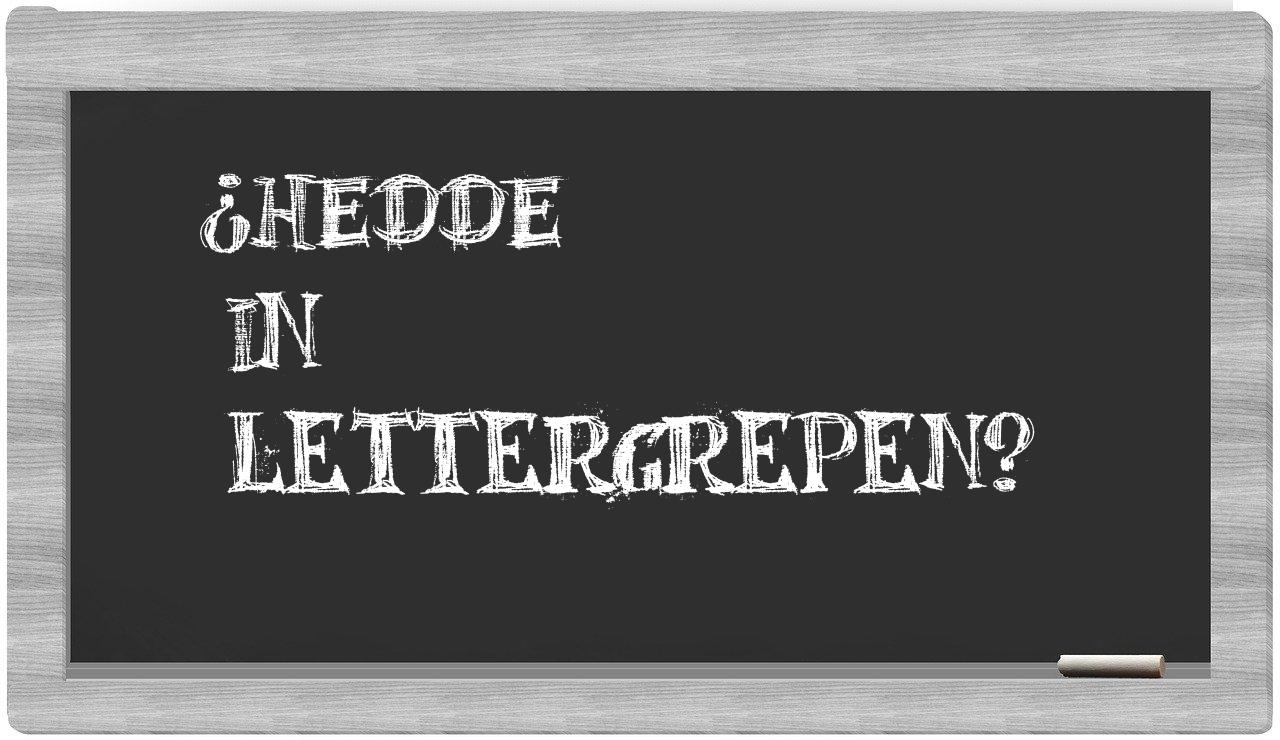 ¿HEDDE
IN
LETTERGREPEN?